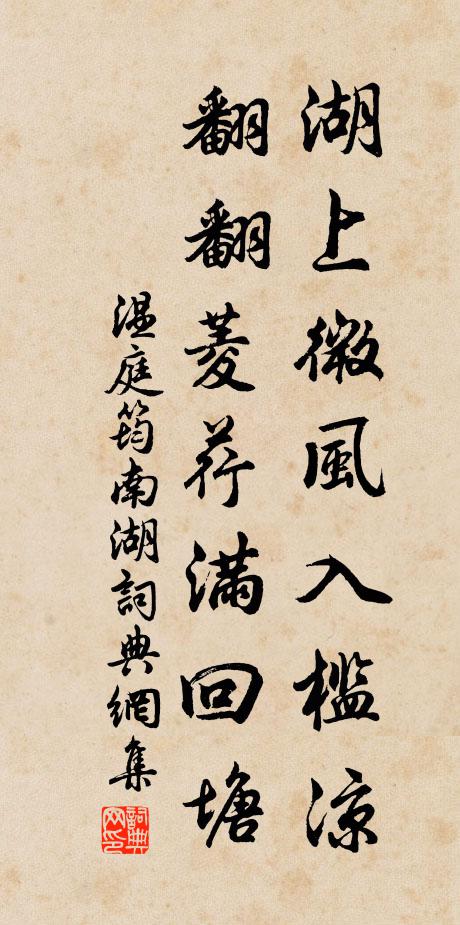 湖上微風入檻涼
翻翻菱荇滿回塘
温庭筠南湖詞典網集
詞典网印